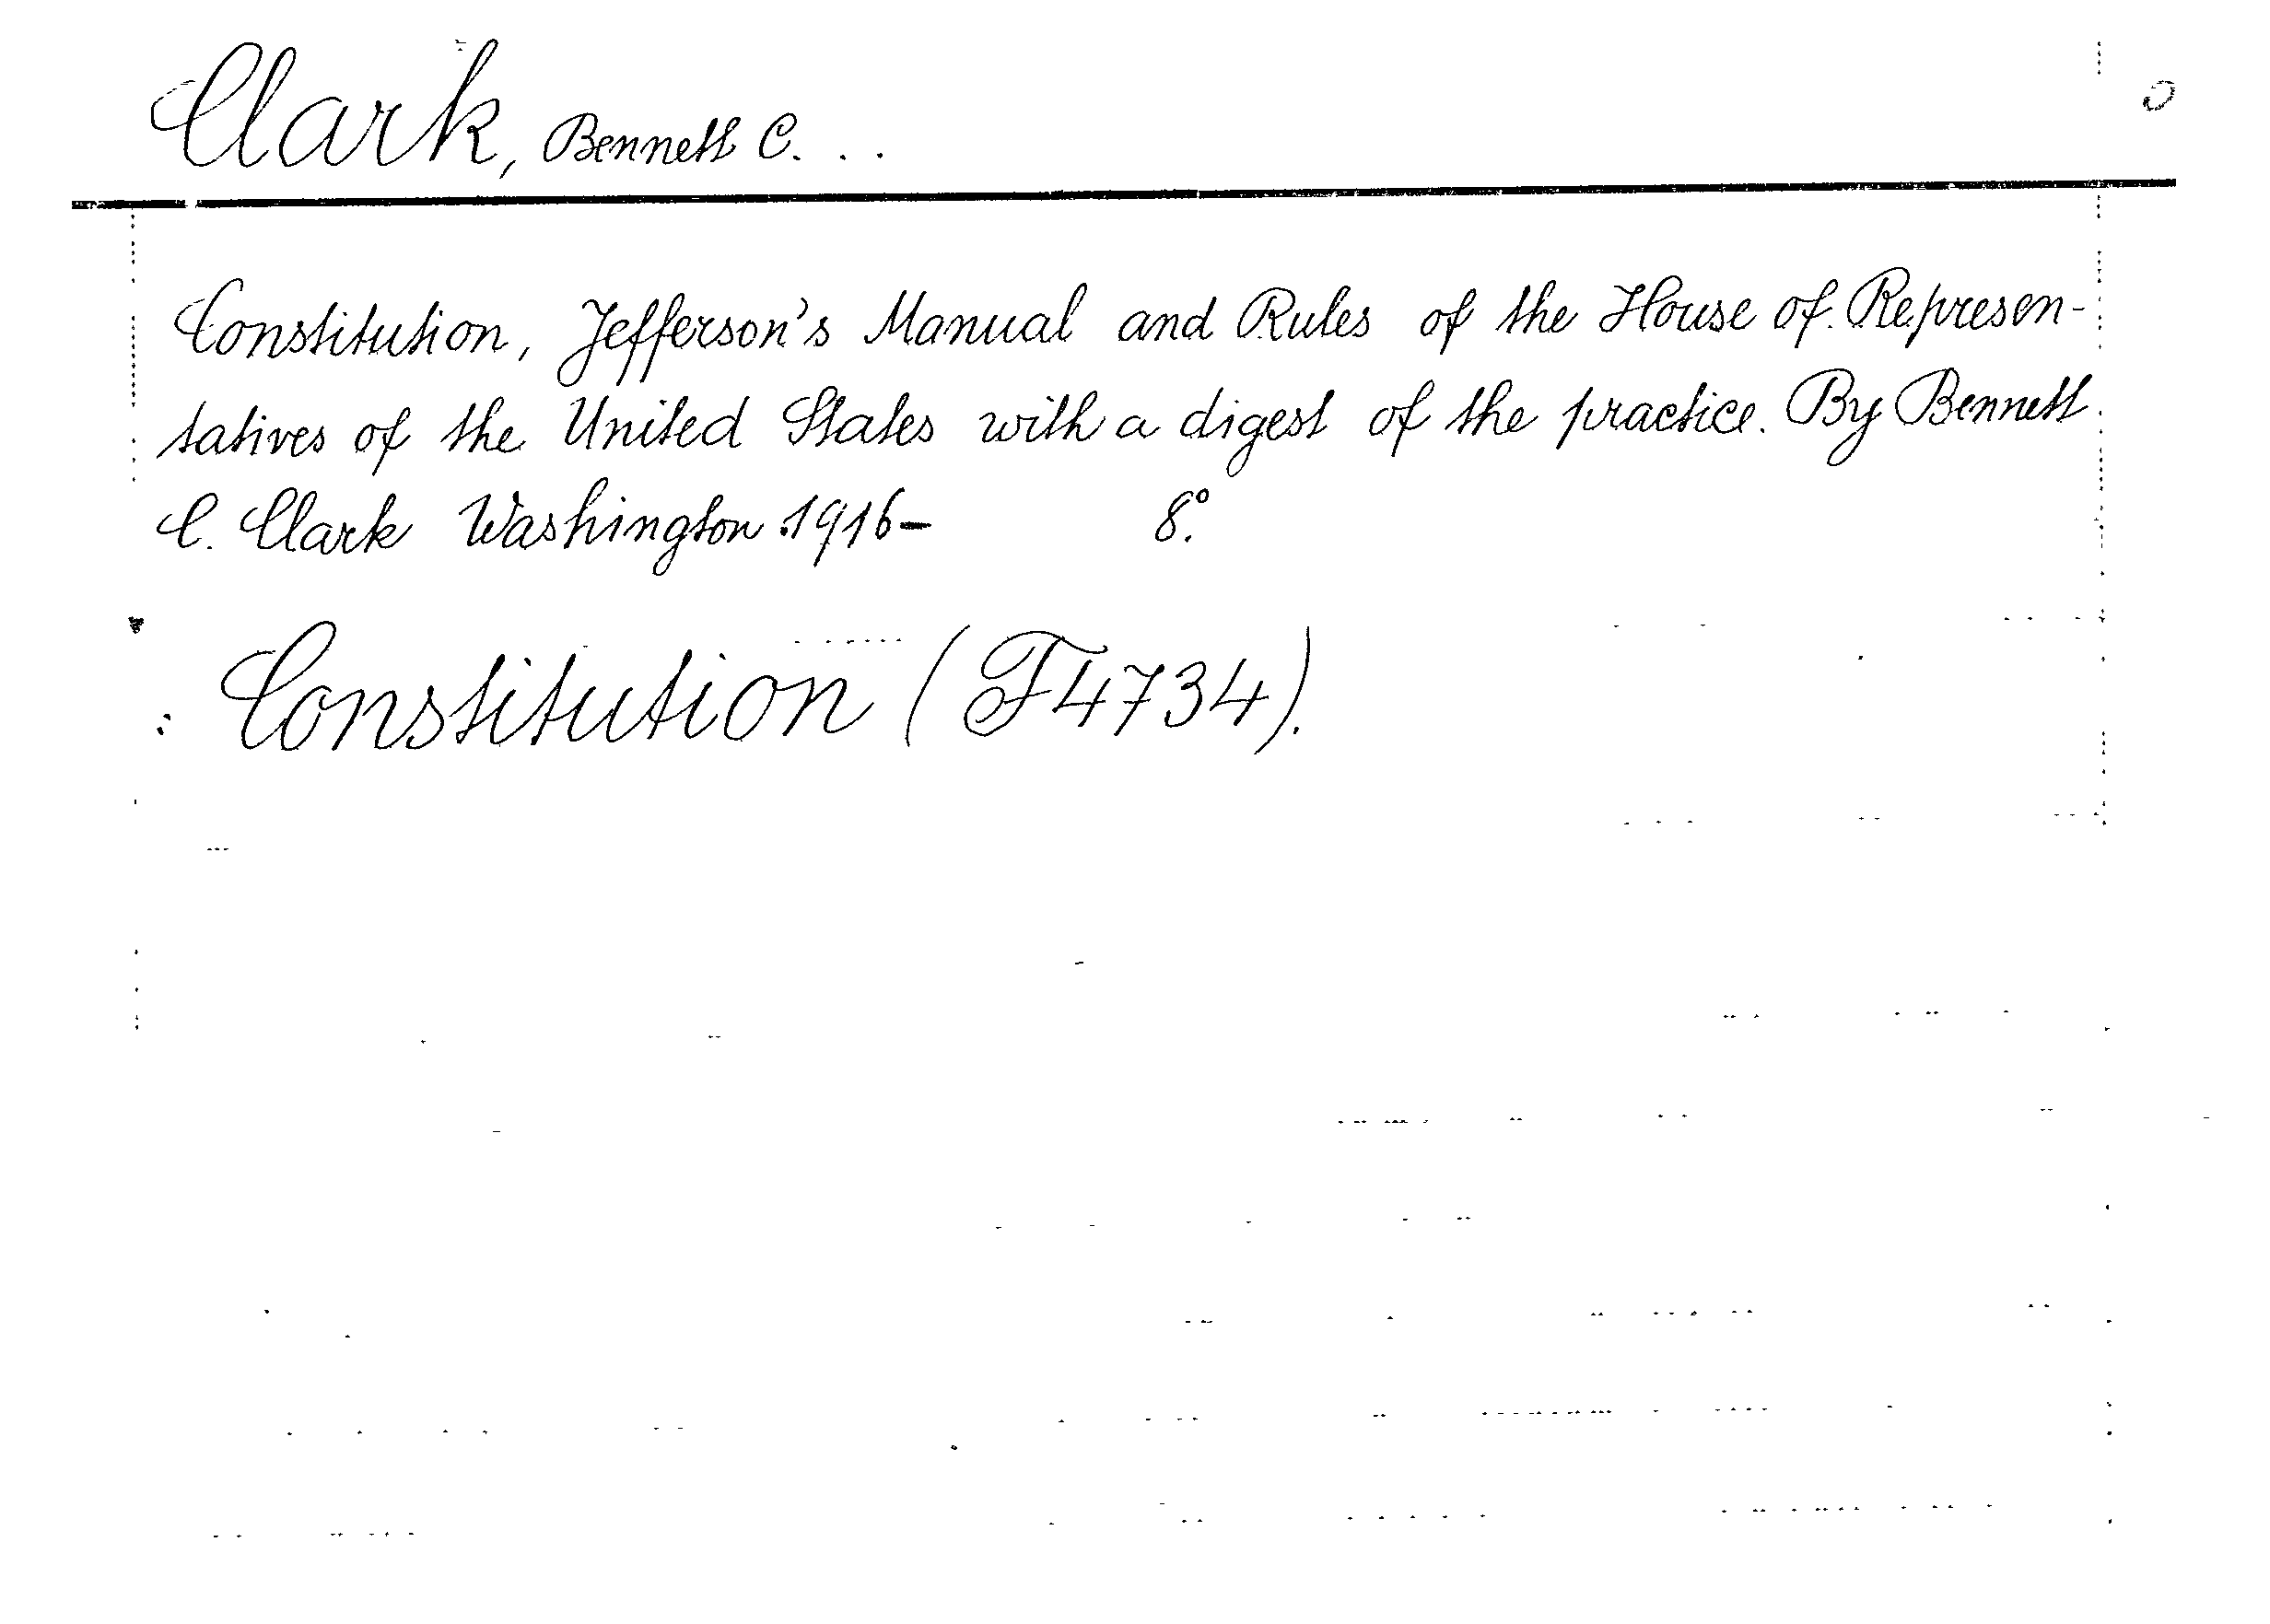 Clark, Bennett C. . .
Constitution, Jefferson's Manual and Rules of the House of Represen-
tatives of the United States with a digest of the practice. By Bennett
C. Clark Washington 1916- 8°.
Constitution (F4734).